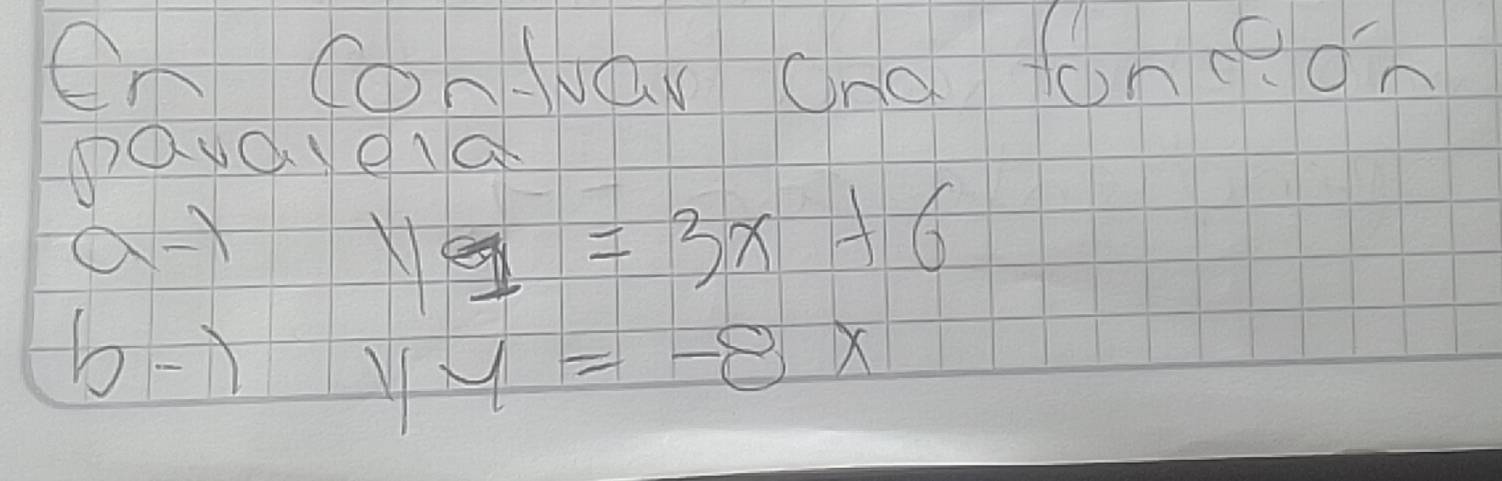 En Contrar una función
paralela
a-) y1 = 3x + 6
b-) y4 = -8x